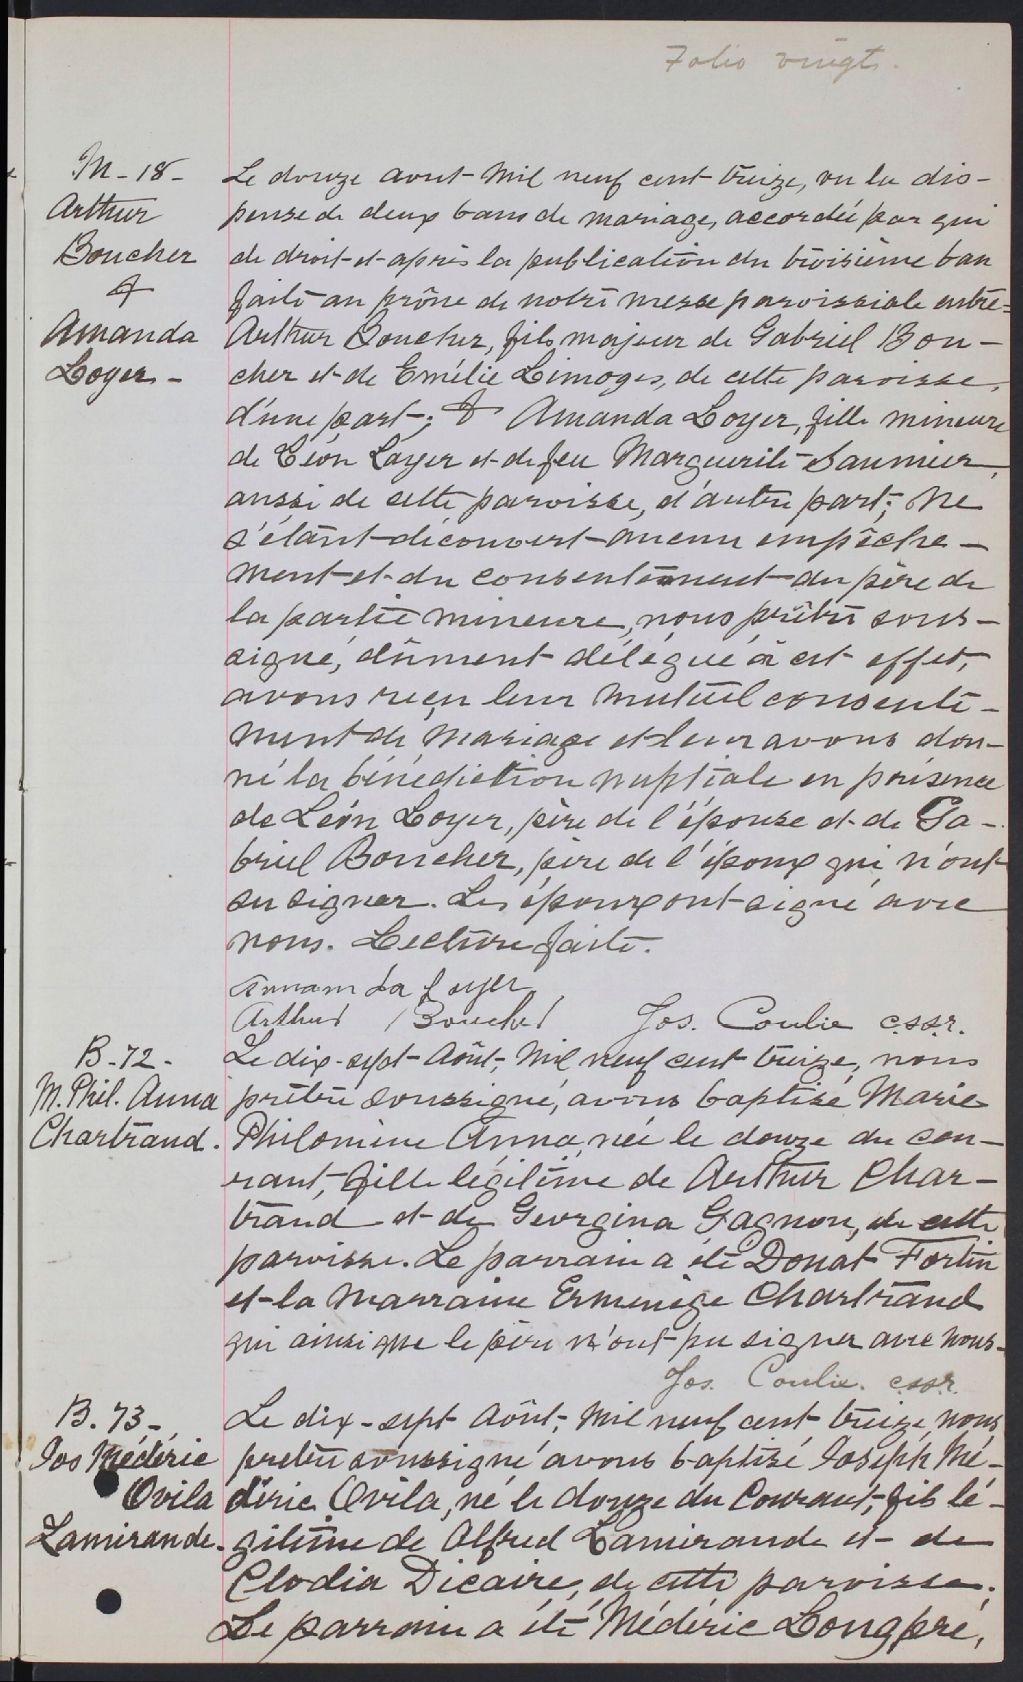 Folio vingt.
M-18-
Arthur
Boucher
&
Amanda
Loyer-
Le douze aout Mil neuf cent treize, vu la dis-
pense de deux bans de mariage, accordée par qui
de droit et après la publication du troisième ban
faite au prône de notre messe paroissiale entre-
Arthur Boucher, fils majeur de Gabriel Bou-
cher et de Emélie Limoges, de cette paroisse,
d'une part; & Amanda Loyer, fille mineure
de Léon Loyer et de feu Marguerite Saumier,
aussi de cette paroisse, d'autre part; ne
s'étant découvert aucun empêche-
ment et du consentement du père de
la partie mineure, nous prêtre sous-
signé, dûment délégué à cet effet,
avons reçu leur mutuel consente-
ment de mariage et leur avons don-
né la bénédiction nuptiale en présence
de Léon Loyer, père de l'épouse et de Ga-
briel Boucher, père de l'époux qui n'ont
su signer. Les époux ont signé avec
nous. Lecture faite.
Amanda Loyer
Arthur Boucher Jos. Coulie c.ss.r.
B-72-
M. Phil. Anna
Chartrand.
Le dix-sept Août, Mil neuf cent treize, nous
prêtre soussigné, avons baptisé Marie
Philomène Anna, née le douze du cou-
rant, fille légitime de Arthur Char-
trand et de Georgina Gagnon, de cette
paroisse. Le parrain a été Donat Fortin
et la marraine Erménige Chartrand
qui ainsi que le père n'ont pu signer avec nous-
Jos. Coulie. c.ss.r.
B. 73-
Jos Médéric
Ovila
Lamirande.
Le dix-sept Août, Mil neuf cent treize, nous
prêtre soussigné avons baptisé Joseph Mé-
déric Ovila, né le douze du Courant, fils lé-
gitime de Alfred Lamirande et de
Clodia Dicaire, de cette paroisse.
Le parrain a été Médéric Longpré,